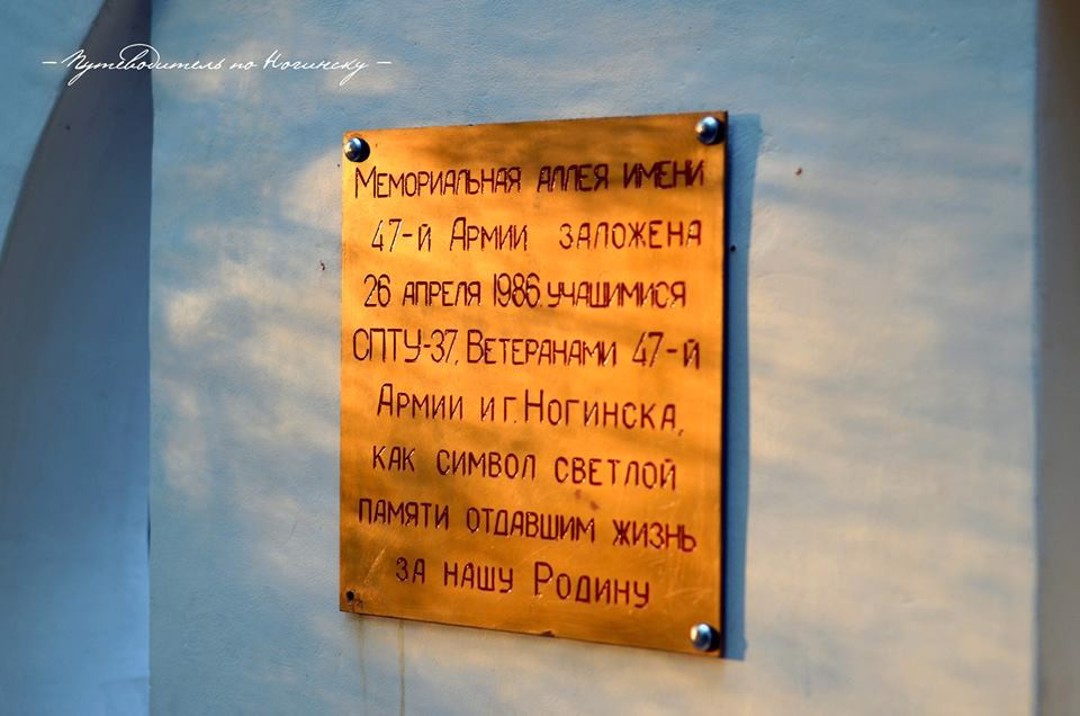 Путеводитель по Ногинску
Мемориальная аллея имени
47-й Армии заложена
26 апреля 1986 учащимися
СПТУ-37, Ветеранами 47-й
Армии и г. Ногинска,
как символ светлой
памяти отдавшим жизнь
за нашу Родину